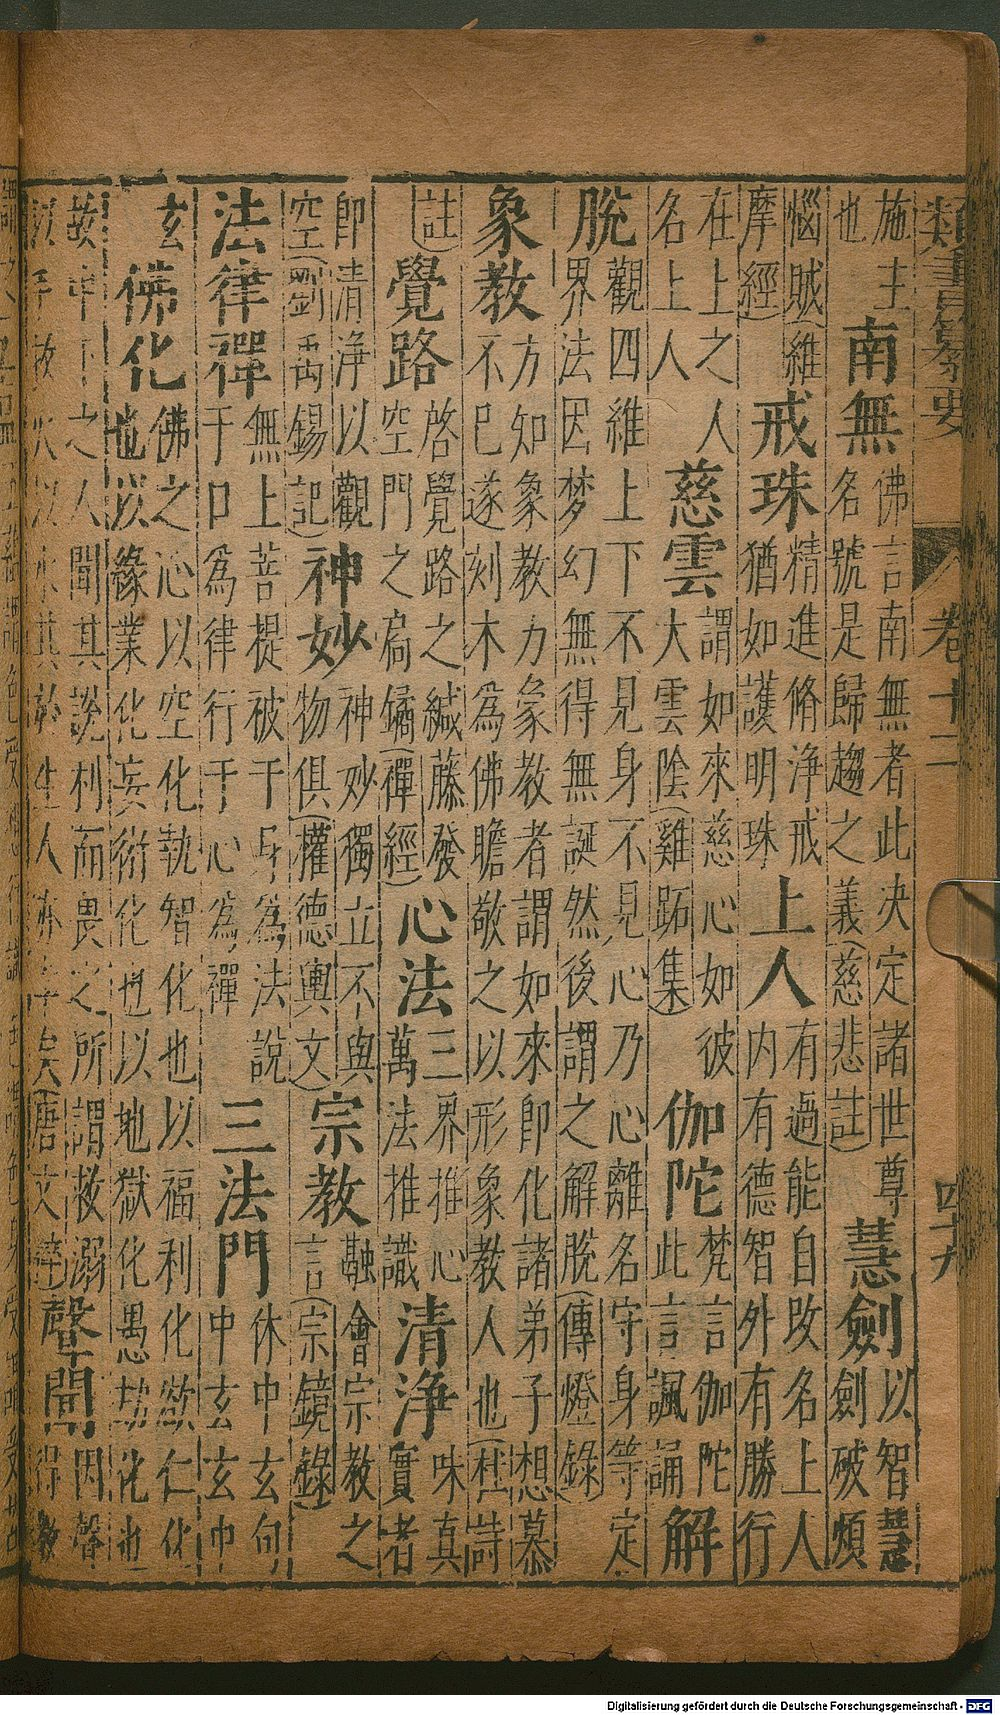 類書纂要 卷十二 四十九
施主也 南無 佛言南無者此决定諸世尊名號是歸趨之義(慈悲註) 慧劍 以智慧劍破煩
惱賊(維摩經) 戒珠 精進脩浄戒猶如護明珠 上人 有過能自改名上人内有德智外有勝行
在上之人名上人 慈雲 謂如來慈心如彼大雲陰(雞跖集) 伽陀 梵言伽陀此言諷誦 解
脫 觀四維上下不見身不見心乃心離名守身等定界法因梦幻無得無誕然後謂之解脫(傳燈録)
象教 方知象教力象教者謂如來即化諸弟子想慕不已遂刻木為佛瞻敬之以形象教人也(杜詩
註) 覺路 啓覺路之緘藤發空門之扃鐍(禪經) 心法 三界推心萬法推識 清浄 味真實者
即清浄以觀空(劉禹錫記) 神妙 神妙獨立不與物俱(權德輿文) 宗教 融會宗教之言(宗鏡錄)
法律禪 無上菩提被于身為法說于口為律行于心為禪 三法門 休中玄句中玄玄中
玄 佛化 佛之心以空化執智化也以福利化欲仁化也以緣業化妄術化也以地獄化愚劫化也
故中下之人聞其說利而畏之所謂救溺以手救火以水其於生人亦矣(唐文) 聲聞 因聲得教
Digitalisierung gefördert durch die Deutsche Forschungsgemeinschaft - DFG